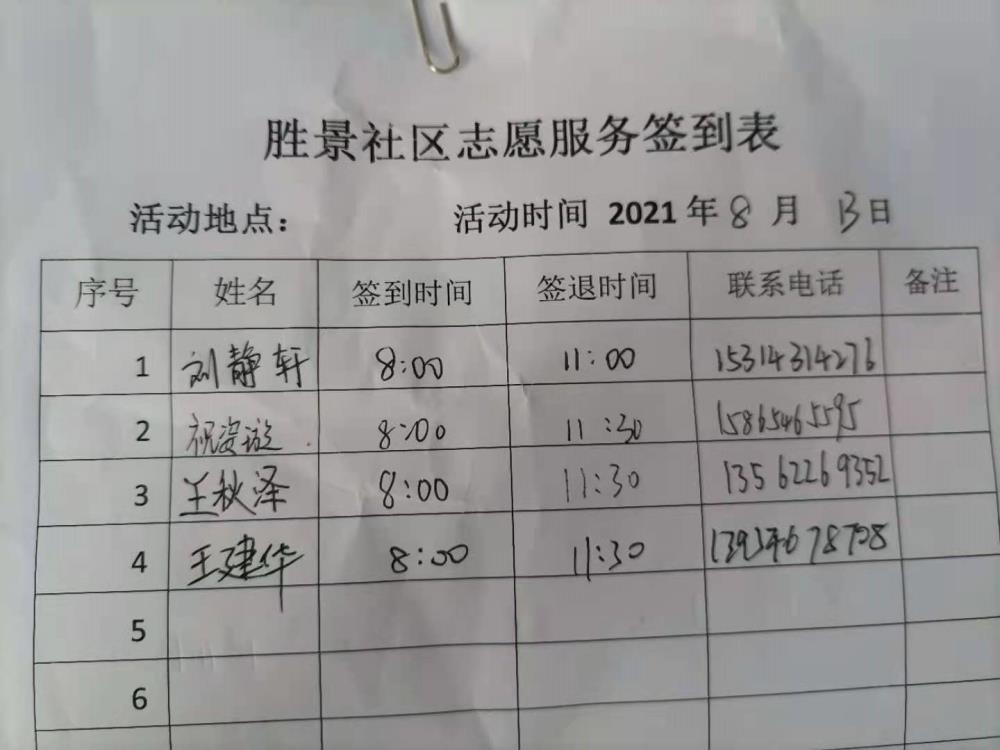 胜景社区志愿服务签到表
活动地点： 活动时间 2021 年 8 月 13 日
序号 姓名 签到时间 签退时间 联系电话 备注
1 刘静轩 8:00 11:00 15314314276
2 祝姿璇 8:00 11:30 15865465595
3 王秋泽 8:00 11:30 13562269352
4 王建华 8:00 11:30
5
6